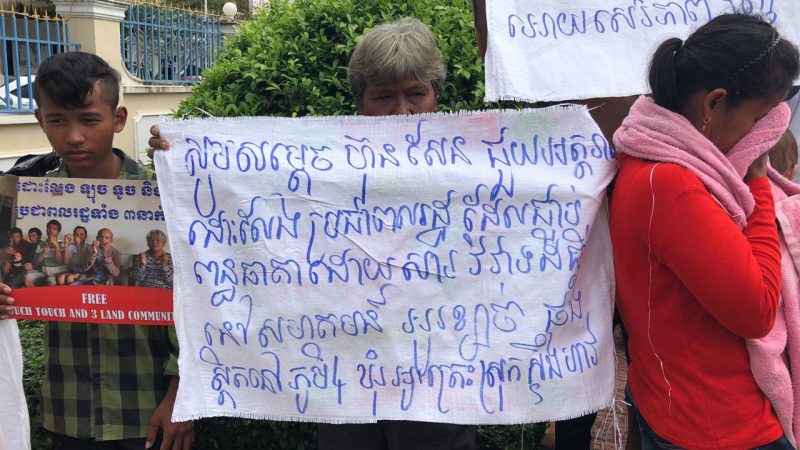 អោយសេរីភាព
សូមសម្តេច ហ៊ុន សែន ជួយអន្តរា
ដោះលែង ប្រជាពលរដ្ឋ ដែលជាប់
ពន្ធនាគារដោយសារ វិវាទដីធ្លី
នៅ សហគមន៍ អូរខ្សាច់
ស្ថិតនៅ ភូមិ4 ឃុំ អូរត្រេះ ស្រុក ស្ទឹងហាវ
ដោះលែង ឡុច ទូច និង
ប្រជាពលរដ្ឋទាំង ៣នាក់
FREE
UCH TOUCH AND 3 LAND COMMUNITY